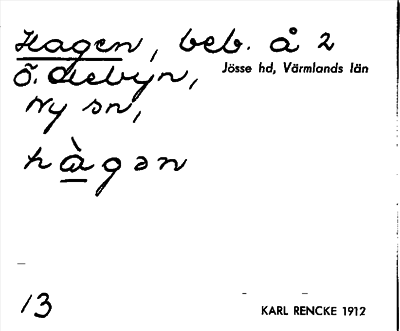 Hagen, beb. å 2
Jösse hd, Värmlands län
Ö. Aebyn,
Ny sn,
hàgən
13
KARL RENCKE 1912